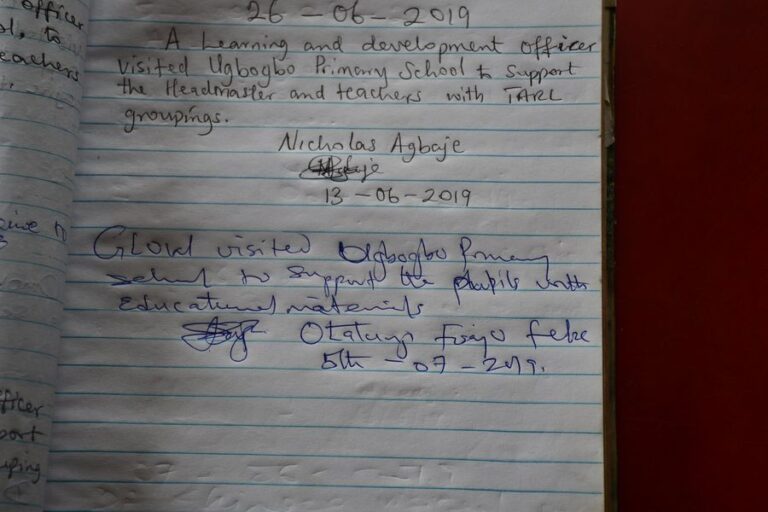 officer
ol, to
eachers
26 - 06 - 2019
A Learning and development officer
visited Ugbogbo Primary School to support
the Headmaster and teachers with TARL
groupings.
Nicholas Agbaje
13 - 06 - 2019
visited Ugbogbo Primary
school to support the pupils with
Educational materials
5th - 07 - 2019.
fficer
port
uping